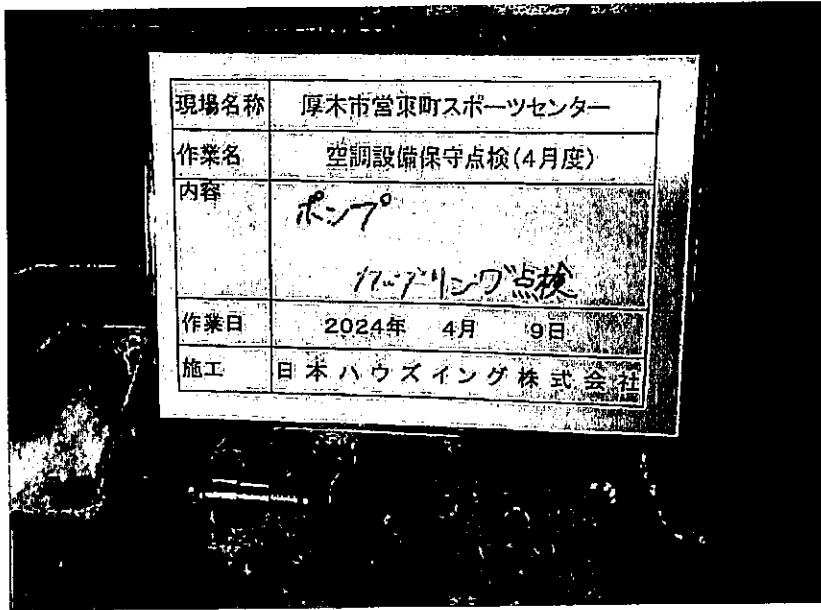 現場名称 厚木市営東町スポーツセンター
作業名 空調設備保守点検(4月度)
内容 ポンプ
カップリング点検
作業日 2024年 4月 9日
施工 日本ハウズイング株式会社